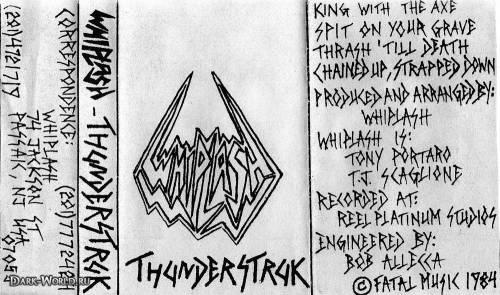 CORRESPONDENCE:
WHIPLASH
74 JACKSON ST
PASSAIC, NJ USA
WHIPLASH - THUNDERSTRUK
WHIPLASH
THUNDERSTRUK
KING WITH THE AXE
SPIT ON YOUR GRAVE
THRASH 'TILL DEATH
CHAINED UP, STRAPPED DOWN
PRODUCED AND ARRANGED BY:
WHIPLASH
WHIPLASH IS:
TONY PORTARO
T.J. SCAGLIONE
RECORDED AT:
REEL PLATINUM STUDIOS
ENGINEERED BY:
BOB ALLECCA
© FATAL MUSIC 1984
Dark-World.ru